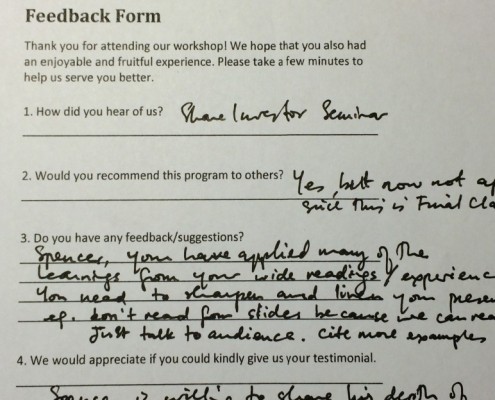 Feedback Form
Thank you for attending our workshop! We hope that you also had
an enjoyable and fruitful experience. Please take a few minutes to
help us serve you better.
1. How did you hear of us? Share Investor Seminar
2. Would you recommend this program to others? Yes, but now not
since this is Final
3. Do you have any feedback/suggestions?
Spencer, you have applied many of the
learnings from your wide readings / experienc
You need to sharpen and liven your
eg. don't read from slides because we can
Just talk to audience. Cite more examples
4. We would appreciate if you could kindly give us your testimonial.
Spencer is willing to share his depth of